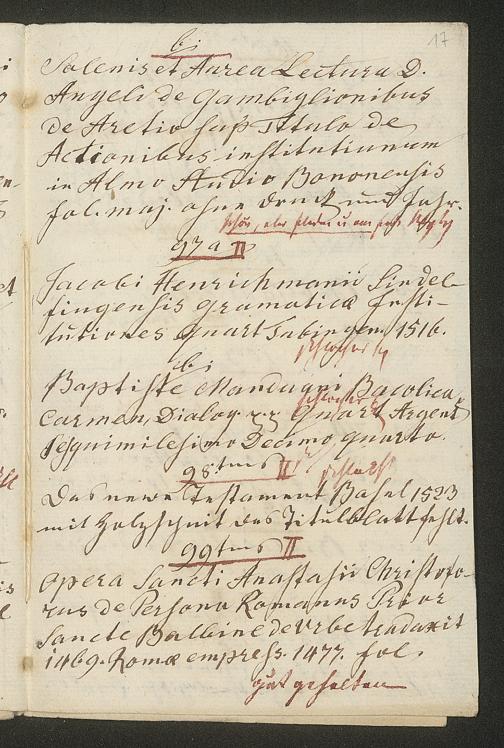 17
b;
Solenis et Aurea Lectura D.
Angeli de Gambiglionibus
de Aretio sup Titulo de
Actionibus institutionum
in Almo Studio Bononensis
fol. maj. ohne Druck und Jahr.
schön, aber
97 a II
Jacobi Henrichmanii Sindel-
fingensis Gramaticæ Insti-
tutiones Quart Tubingen. 1516.
b;
Baptiste Mandugni Bacolica,
Carmen, Dialog Quart Argent
sesquimilesimo Decimo quarto.
98tms II
schlecht
Das neue Testament Basel 1523
mit Holzschnit das Titulblatt fehlt.
99tms II
Opera Sancti Anastasii Christofo-
rus de Persona Romanus Prior
Sancte Balbine de Urbe tradaxit
1469. Romæ empress. 1477. fol.
gut gehalten